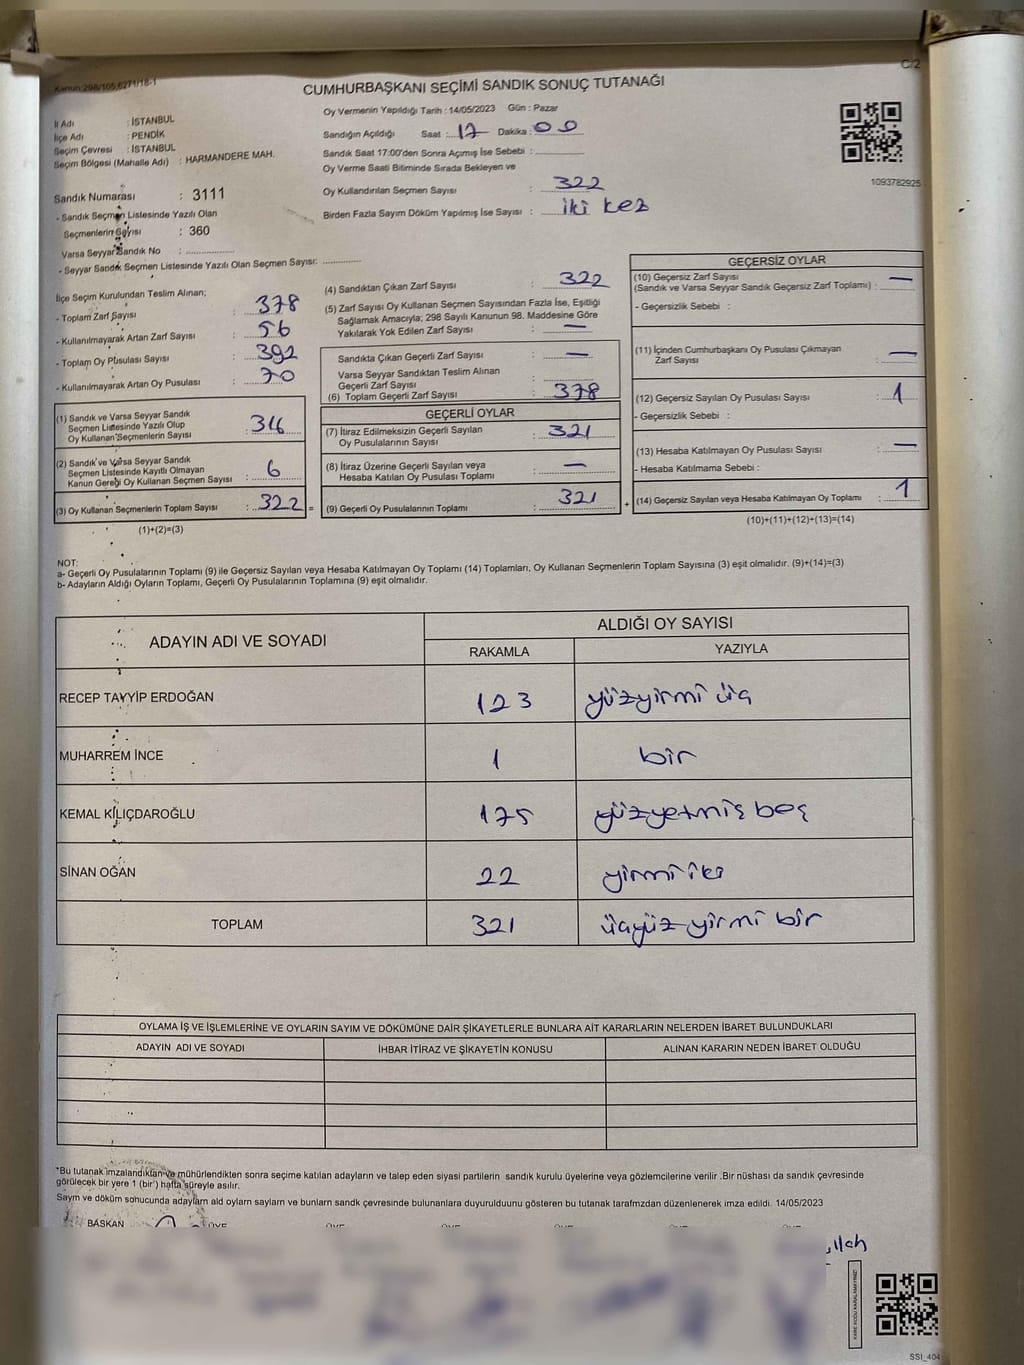 Kanun:298/105,6271/18-1
C 2
CUMHURBAŞKANI SEÇİMİ SANDIK SONUÇ TUTANAĞI
İl Adı : İSTANBUL
İlçe Adı : PENDİK
Seçim Çevresi : İSTANBUL
Seçim Bölgesi (Mahalle Adı) : HARMANDERE MAH.
Oy Vermenin Yapıldığı Tarih : 14/05/2023 Gün : Pazar
Sandığın Açıldığı Saat : 17 Dakika : 00
Sandık Saat 17:00'den Sonra Açımış İse Sebebi :
Oy Verme Saati Bitiminde Sırada Bekleyen ve
Oy Kullandırılan Seçmen Sayısı : 322
Birden Fazla Sayım Döküm Yapılmış İse Sayısı : iki kez
1093782925
Sandık Numarası : 3111
- Sandık Seçmen Listesinde Yazılı Olan
Seçmenlerin Sayısı : 360
Varsa Seyyar Sandık No :
- Seyyar Sandık Seçmen Listesinde Yazılı Olan Seçmen Sayısı:
İlçe Seçim Kurulundan Teslim Alınan;
- Toplam Zarf Sayısı : 378
- Kullanılmayarak Artan Zarf Sayısı : 56
- Toplam Oy Pusulası Sayısı : 392
- Kullanılmayarak Artan Oy Pusulası : 70
(1) Sandık ve Varsa Seyyar Sandık
Seçmen Listesinde Yazılı Olup
Oy Kullanan Seçmenlerin Sayısı : 316
(2) Sandık ve Varsa Seyyar Sandık
Seçmen Listesinde Kayıtlı Olmayan
Kanun Gereği Oy Kullanan Seçmen Sayısı : 6
(3) Oy Kullanan Seçmenlerin Toplam Sayısı : 322 =
(1)+(2)=(3)
(4) Sandıktan Çıkan Zarf Sayısı : 322
(5) Zarf Sayısı Oy Kullanan Seçmen Sayısından Fazla İse, Eşitliği
Sağlamak Amacıyla; 298 Sayılı Kanunun 98. Maddesine Göre
Yakılarak Yok Edilen Zarf Sayısı : —
Sandıkta Çıkan Geçerli Zarf Sayısı : —
Varsa Seyyar Sandıktan Teslim Alınan
Geçerli Zarf Sayısı :
(6) Toplam Geçerli Zarf Sayısı : 378
GEÇERLİ OYLAR
(7) İtiraz Edilmeksizin Geçerli Sayılan
Oy Pusulalarının Sayısı : 321
(8) İtiraz Üzerine Geçerli Sayılan veya
Hesaba Katılan Oy Pusulası Toplamı : —
(9) Geçerli Oy Pusulalarının Toplamı : 321 +
GEÇERSİZ OYLAR
(10) Geçersiz Zarf Sayısı
(Sandık ve Varsa Seyyar Sandık Geçersiz Zarf Toplamı) : —
- Geçersizlik Sebebi :
(11) İçinden Cumhurbaşkanı Oy Pusulası Çıkmayan
Zarf Sayısı : —
(12) Geçersiz Sayılan Oy Pusulası Sayısı : 1
- Geçersizlik Sebebi :
(13) Hesaba Katılmayan Oy Pusulası Sayısı : —
- Hesaba Katılmama Sebebi :
(14) Geçersiz Sayılan veya Hesaba Katılmayan Oy Toplamı : 1
(10)+(11)+(12)+(13)=(14)
NOT:
a- Geçerli Oy Pusulalarının Toplamı (9) ile Geçersiz Sayılan veya Hesaba Katılmayan Oy Toplamı (14) Toplamları, Oy Kullanan Seçmenlerin Toplam Sayısına (3) eşit olmalıdır. (9)+(14)=(3)
b- Adayların Aldığı Oyların Toplamı, Geçerli Oy Pusulalarının Toplamına (9) eşit olmalıdır.
ADAYIN ADI VE SOYADI
ALDIĞI OY SAYISI
RAKAMLA YAZIYLA
RECEP TAYYİP ERDOĞAN 123 yüzyirmi üç
MUHARREM İNCE 1 bir
KEMAL KILIÇDAROĞLU 175 yüzyetmiş beş
SİNAN OĞAN 22 yirmi iki
TOPLAM 321 üçyüz yirmi bir
OYLAMA İŞ VE İŞLEMLERİNE VE OYLARIN SAYIM VE DÖKÜMÜNE DAİR ŞİKAYETLERLE BUNLARA AİT KARARLARIN NELERDEN İBARET BULUNDUKLARI
ADAYIN ADI VE SOYADI İHBAR İTİRAZ VE ŞİKAYETİN KONUSU ALINAN KARARIN NEDEN İBARET OLDUĞU
*Bu tutanak imzalandıktan ve mühürlendikten sonra seçime katılan adayların ve talep eden siyasi partilerin sandık kurulu üyelerine veya gözlemcilerine verilir .Bir nüshası da sandık çevresinde
görülecek bir yere 1 (bir) hafta süreyle asılır.
Sayım ve döküm sonucunda adayların ald oyların saylarn ve bunların sandk çevresinde bulunanlara duyurulduunu gösteren bu tutanak tarafmzdan düzenlenerek imza edildi. 14/05/2023
BAŞKAN ÜYE ÜYE ÜYE ÜYE ÜYE ÜYE
KARE KODU KARALAMAYINIZ!
SSI_404